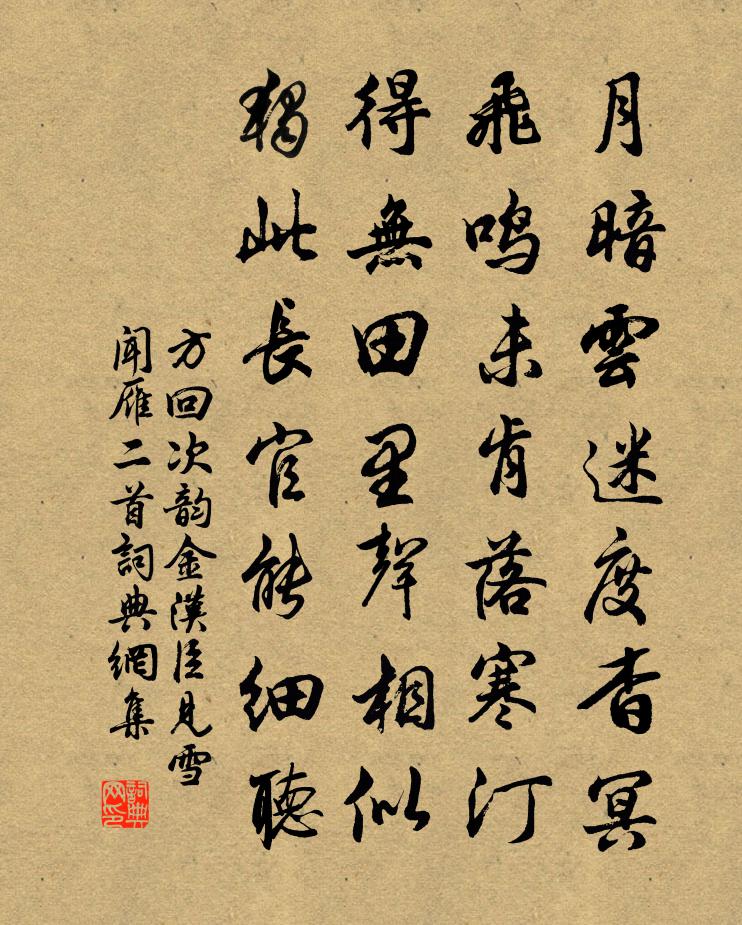 月暗雲迷度杳冥
飛鳴未肯落寒汀
得無田里聲相似
獨此長官能細聽
方回次韵金漢臣見雪
聞雁二首詞典網集
詞典
网印